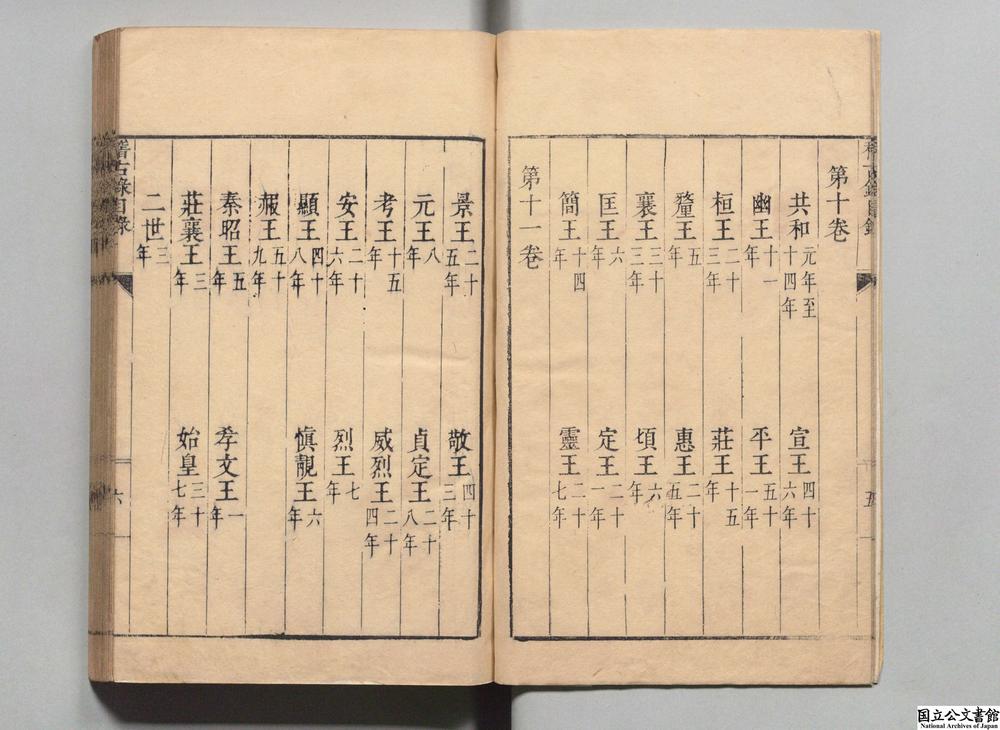 稽古錄目錄
五
第十卷
共和元年至十四年 宣王四十六年
幽王十一年 平王五十一年
桓王二十三年 莊王十五年
釐王五年 惠王二十五年
襄王三十三年 頃王六年
匡王六年 定王二十一年
簡王十四年 靈王二十七年
第十一卷
景王二十五年 敬王四十三年
元王八年 貞定王二十八年
考王十五年 威烈王二十四年
安王二十六年 烈王七年
顯王四十八年 愼靚王六年
赧王五十九年
秦昭王五年 孝文王一年
莊襄王三年 始皇三十七年
二世三年
稽古錄目錄
六
国立公文書館
National Archives of Japan